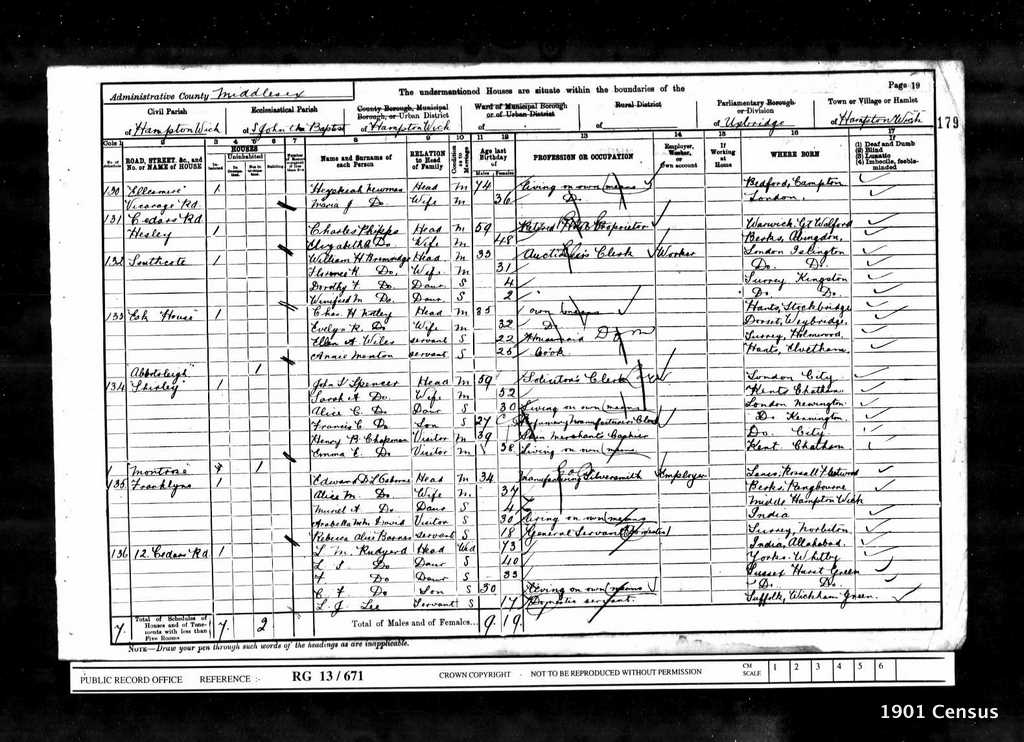 Page 19
Administrative County Middlesex
The undermentioned Houses are situate within the boundaries of the
Civil Parish
of Hampton Wick
Ecclesiastical Parish
of St John the Baptist
County Borough, Municipal Borough, or Urban District
of Hampton Wick
Ward of Municipal Borough or of Urban District
of
Rural District
of
Parliamentary Borough or Division
of Uxbridge
Town or Village or Hamlet
of Hampton Wick
179
Cols 1 2 3 4 5 6 7 8 9 10 11 12 13 14 15 16 17
ROAD, STREET, &c., and No. or NAME of HOUSE
HOUSES
Uninhabited
Name and Surname of each Person
RELATION to Head of Family
Age last Birthday of
Males Females
PROFESSION OR OCCUPATION
Employer, Worker, or Own account
If Working at Home
WHERE BORN
(1) Deaf and Dumb
(2) Blind
(3) Lunatic
(4) Imbecile, feeble-minded
130 "Ellesmere" 1 Newman Head M 74 Living on own means Bedford, Campton
Vicarage Rd Maria J Do. Wife M 36 Do. London
131 Cedars Rd
Hesley 1 Charles Phipps Head M 59 Proprietor Warwick Gt Wolford
Elizabeth Do. Wife M 48 Berks, Abingdon
132 Southcote 1 William H Head M 33 Clerk Worker London Islington
Florence Do. Wife M 31 Do. Do.
Dorothy F Do. Daur S 4 Surrey Kingston
Winifred M Do. Daur S 2 Do. Do.
133 Esk House 1 Chas. H Head M 35 own means Hants, Stockbridge
Evelyn R. Do. Wife M 32 D. Dorset, Weybridge
Ellen A Wiles servant S 22 Housemaid Dom Surrey, Holmwood
Annie servant S 25 Cook Hants, Elvetham
Abbotsleigh 1
134 "Shirley" 1 John S Spencer Head M 59 Solicitor's Clerk London City
Sarah A Do. Wife M 52 Kent Chatham
Alice C. Do. Daur S 30 Living on own means London Newington
Francis C Do. Son S 27 Do. Kennington
Henry B Chapman Visitor M 39 Merchants Cashier Do. City
Emma E. Do. Visitor M 38 Living on own means Kent Chatham
"Montrose" 1
135 Franklyns 1 Edward D L Osborne Head M 34 Manufacturing Silversmith Employer Lancs. Rossall Fleetwood
Alice M. Do. Wife M. 37 Berks Pangbourne
Muriel A Do. Daur S 4 Midds Hampton Wick
David Visitor S 30 Living on own means India
Rebecca Alice Barnes servant S 18 General Servant (Domestic) Surrey, Norbiton
136 12 Cedars Rd 1 L M. Rudyerd Head Wid 73 India, Allahabad
L S Do Daur S 40 Yorks. Whitby
F Do Daur S 33 Sussex Hurst Green
C F Do Son S 30 Living on own means Do. Do.
L. J. Lee Servant S 17 Domestic servant. Suffolk, Wickham Green.
7 Total of Schedules of Houses and of Tenements with less than Five Rooms 7 2 Total of Males and of Females... 9 19
NOTE—Draw your pen through such words of the headings as are inapplicable.
PUBLIC RECORD OFFICE REFERENCE :- RG 13/671 CROWN COPYRIGHT - NOT TO BE REPRODUCED WITHOUT PERMISSION CM SCALE 1 2 3 4 5 6
1901 Census